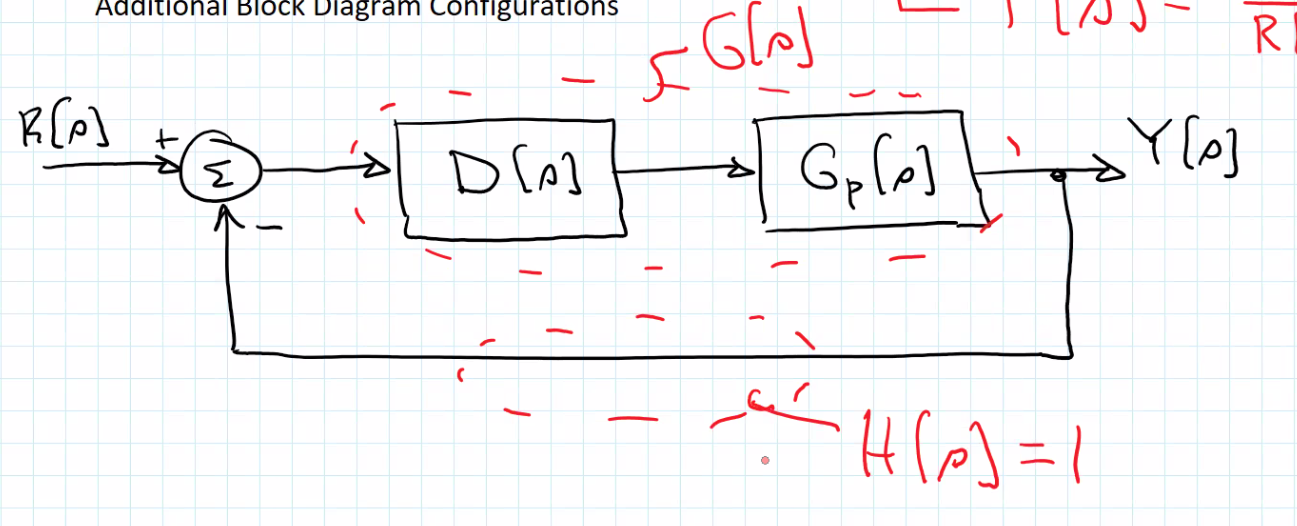 Additional Block Diagram Configurations
G[s]
R[s]
+
Σ
D[s]
Gp[s]
Y[s]
−
H[s] = 1